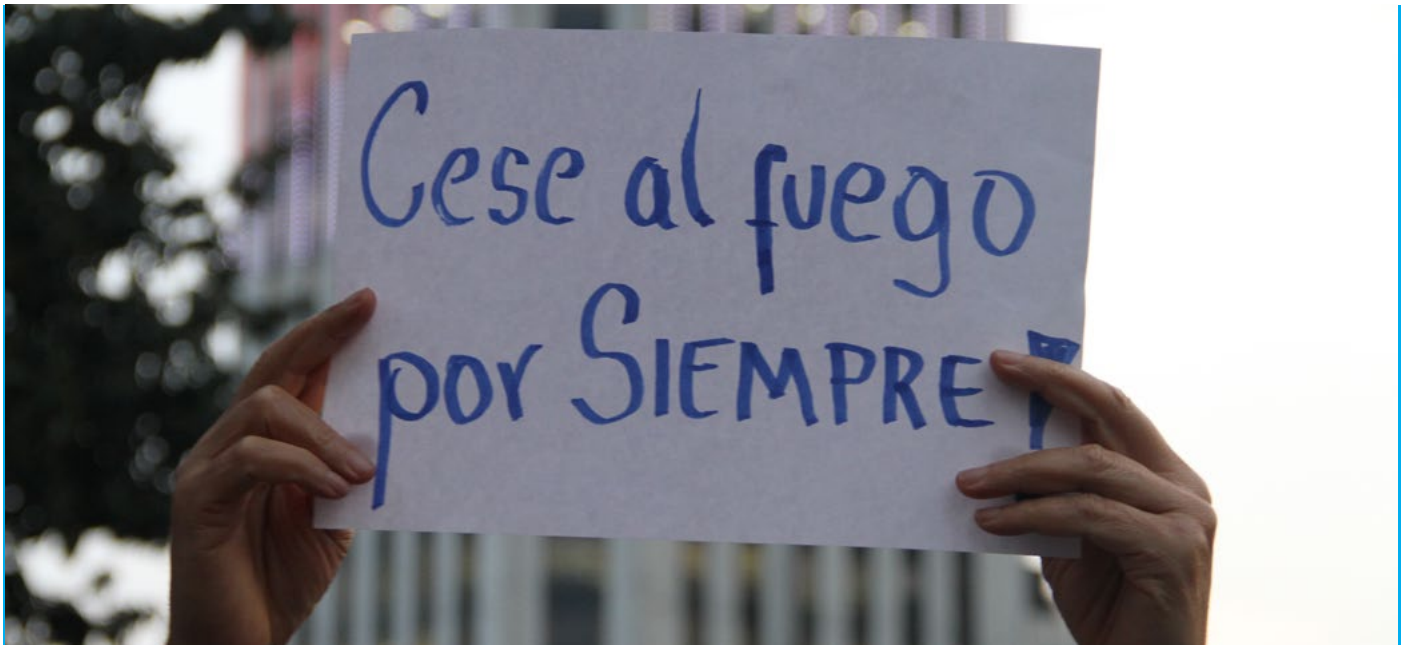 Cese al fuego
por SIEMPRE!